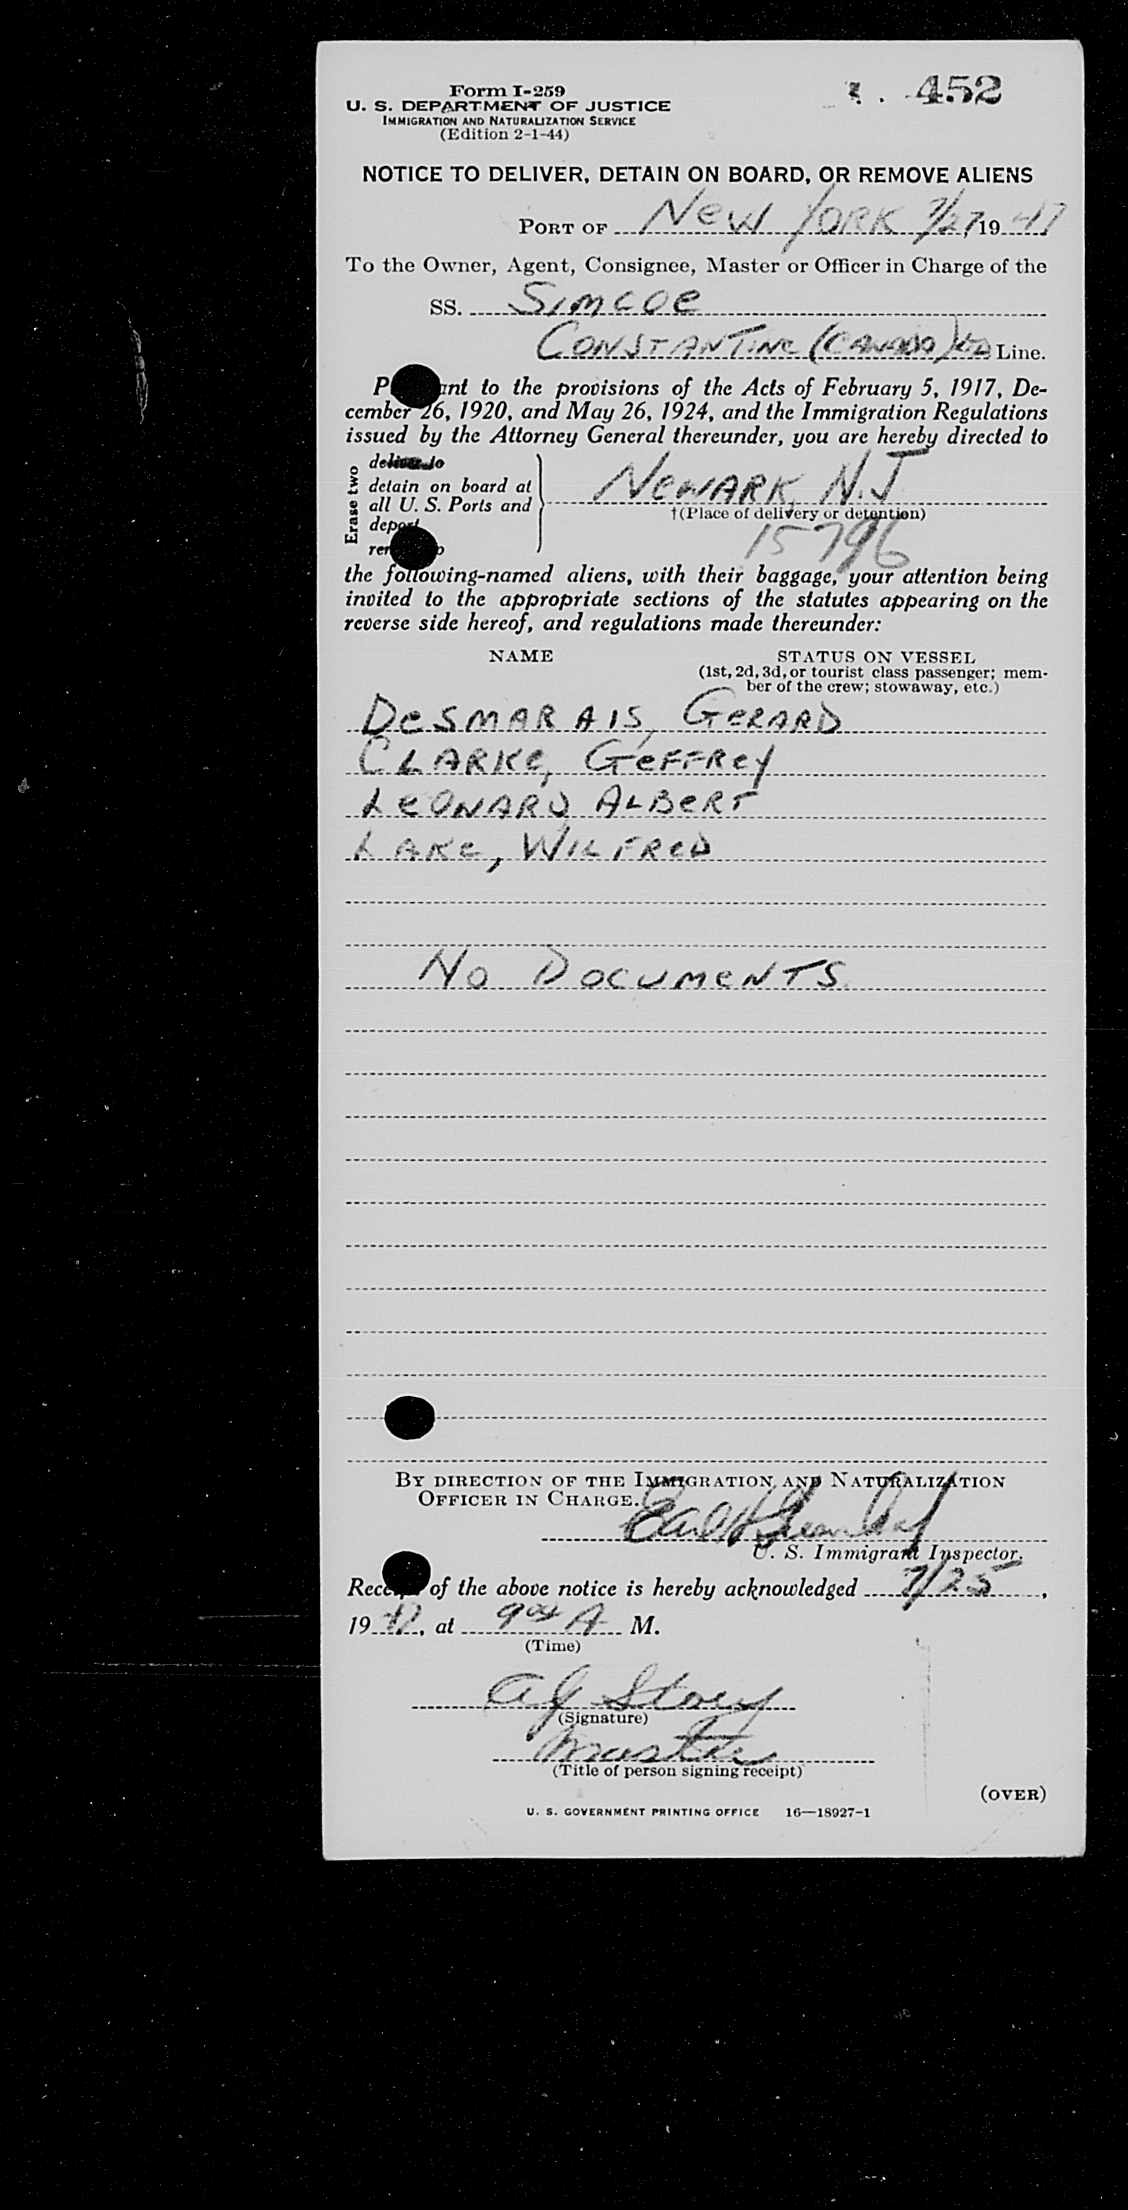 Form I-259
452
U. S. DEPARTMENT OF JUSTICE
IMMIGRATION AND NATURALIZATION SERVICE
(Edition 2-1-44)
NOTICE TO DELIVER, DETAIN ON BOARD, OR REMOVE ALIENS
PORT OF NEW YORK 7/27, 1947
To the Owner, Agent, Consignee, Master or Officer in Charge of the
SS. SIMCOE
CONSTANTINE (CANADA) LTD Line.
P nt to the provisions of the Acts of February 5, 1917, De-
cember 26, 1920, and May 26, 1924, and the Immigration Regulations
issued by the Attorney General thereunder, you are hereby directed to
Erase two
deliver to
detain on board at
all U. S. Ports and
deport
NEWARK, N.J
†(Place of delivery or detention)
15796
the following-named aliens, with their baggage, your attention being
invited to the appropriate sections of the statutes appearing on the
reverse side hereof, and regulations made thereunder:
NAME STATUS ON VESSEL
(1st, 2d, 3d, or tourist class passenger; mem-
ber of the crew; stowaway, etc.)
DESMARAIS, GERARD
CLARKE, GEFFREY
LEONARD, ALBERT
LAKE, WILFRED
NO DOCUMENTS
BY DIRECTION OF THE IMMIGRATION AND NATURALIZATION
OFFICER IN CHARGE.
U. S. Immigrant Inspector.
Rece of the above notice is hereby acknowledged 7/25,
1947, at 9 00 A M.
(Time)
A J Storey
(Signature)
Master
(Title of person signing receipt)
(OVER)
U. S. GOVERNMENT PRINTING OFFICE 16—18927-1